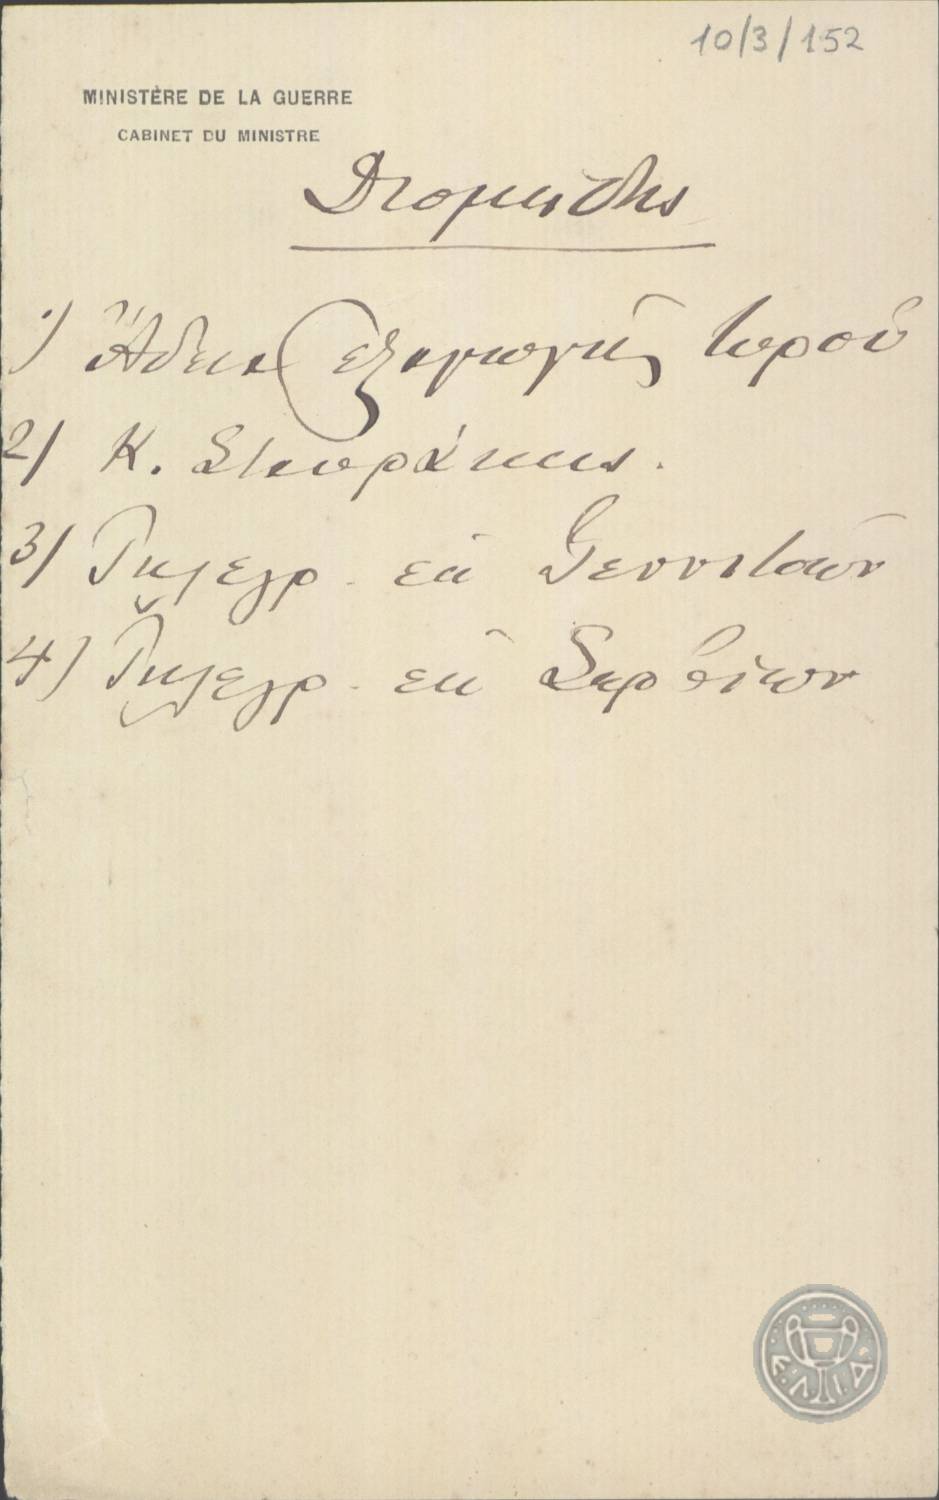 10/3/152
MINISTÈRE DE LA GUERRE
CABINET DU MINISTRE
Διομήδης
1) Ἄδεια ἐξαγωγῆς τυροῦ
2) Κ. Σταυράκης.
3) Τηλεγρ. ἐκ Γεννιτσῶν
4) Τηλεγρ. ἐκ Σερβίων
Ε.Λ.Ι.Α